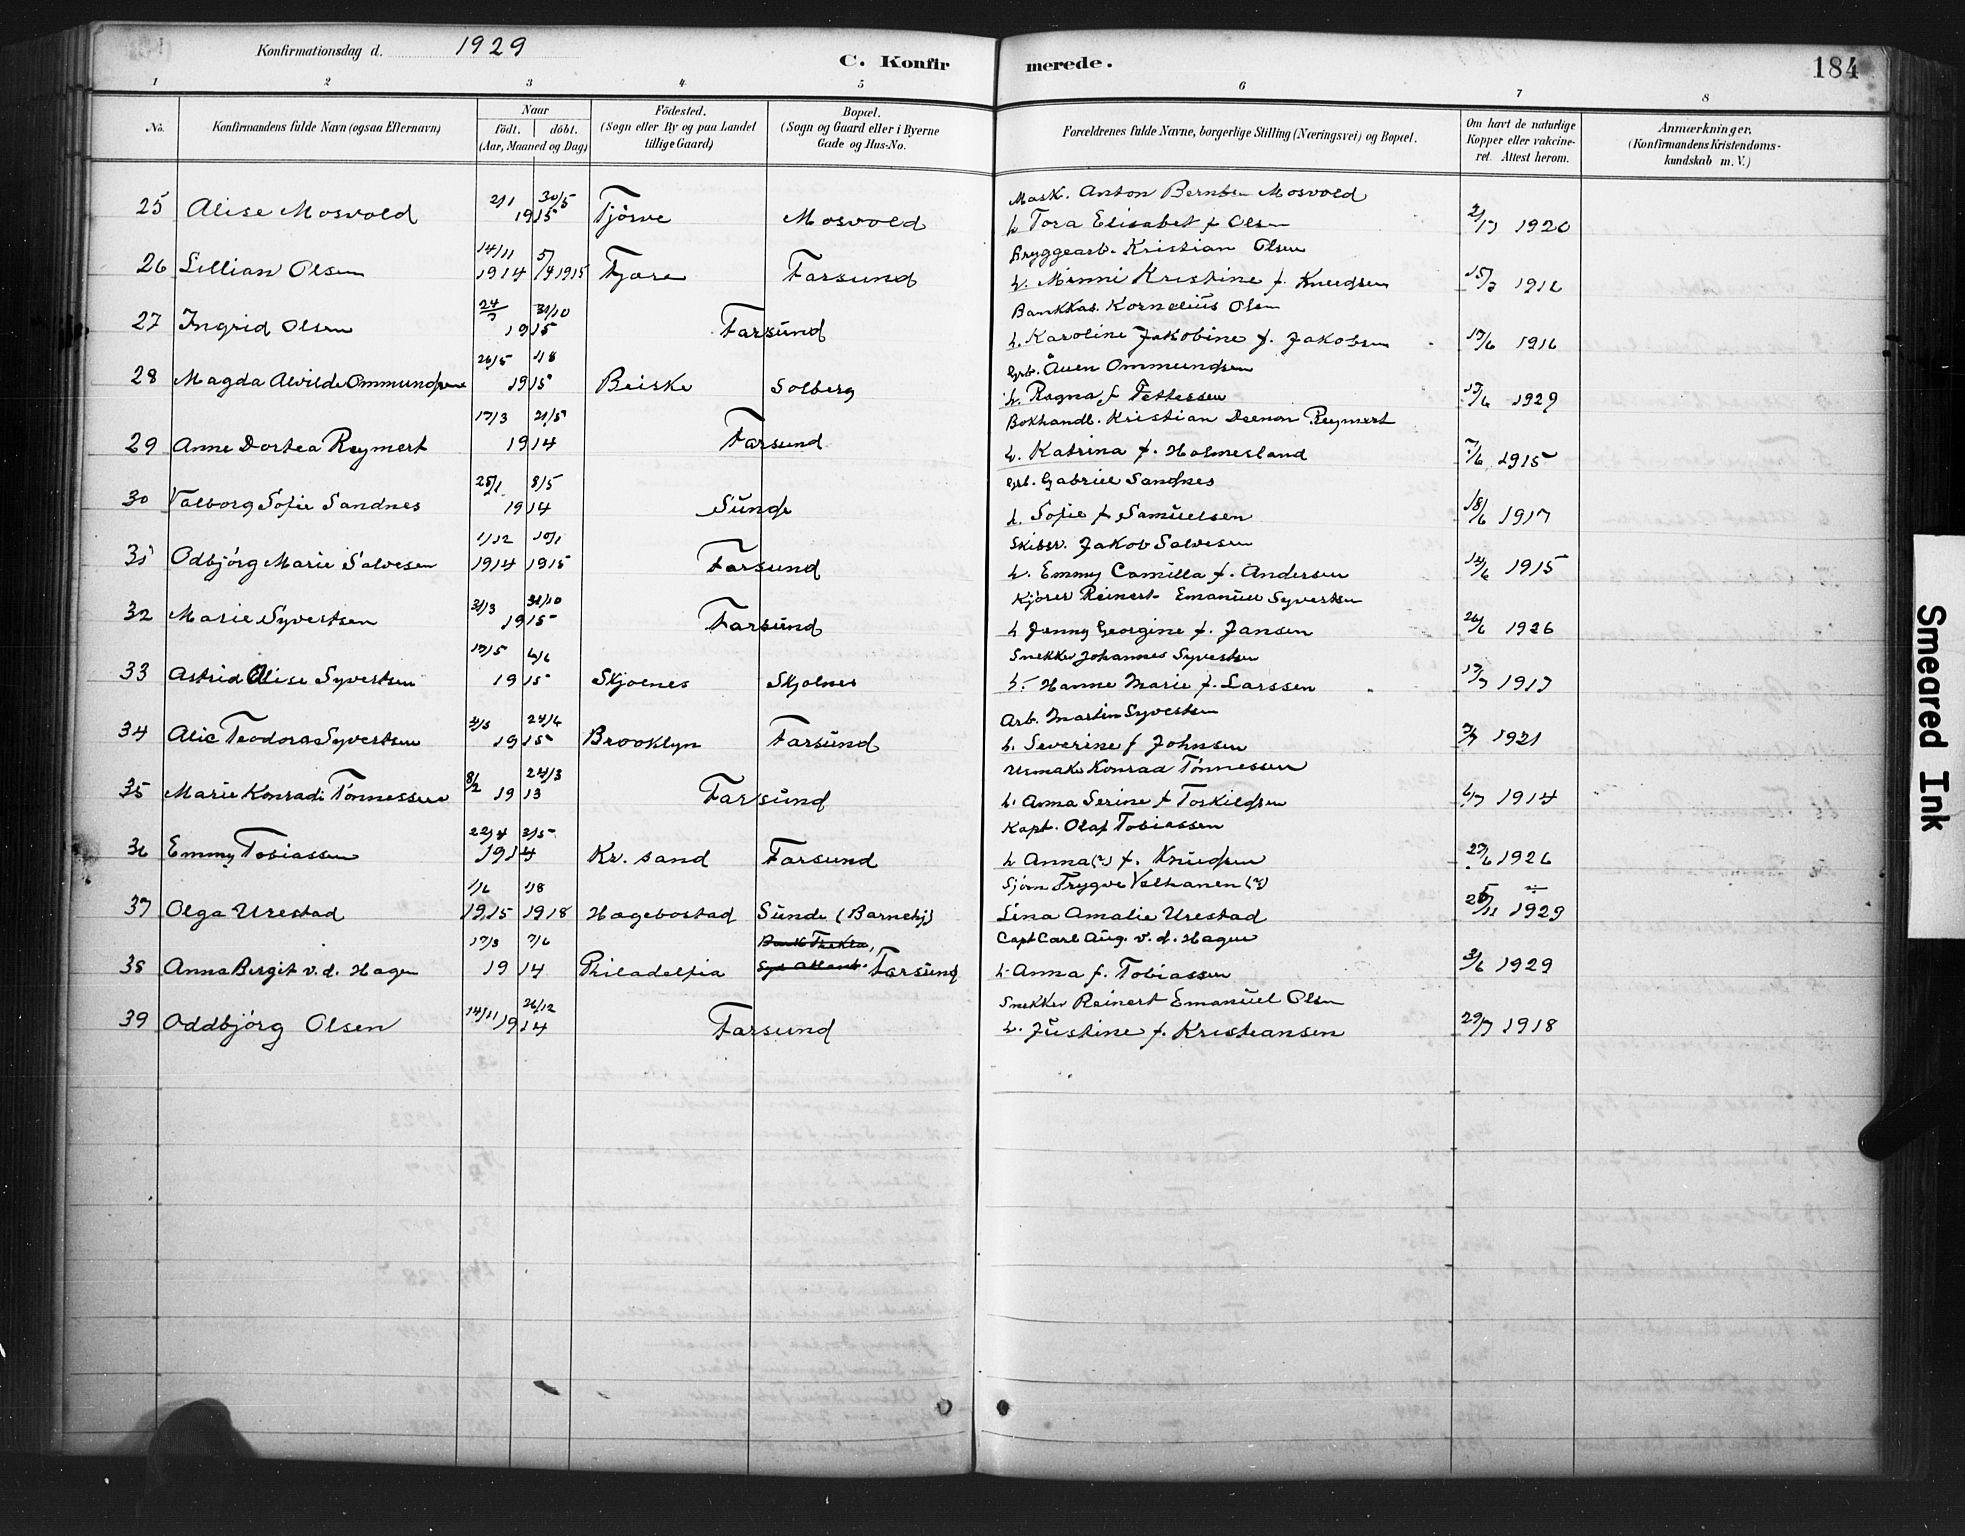 Konfirmationsdag d. 1929
C. Konfirmerede.
184
1 2 3 4 5 6 7 8
No.
Konfirmandens fulde Navn (ogsaa Efternavn)
Naar
födt. döbt.
(Aar, Maaned og Dag)
Födested.
(Sogn eller By og paa Landet
tillige Gaard)
Bopæl.
(Sogn og Gaard eller i Byerne
Gade og Hus-No.
Forældrenes fulde Navne, borgerlige Stilling (Næringsvei) og Bopæl.
Om havt de naturlige
Kopper eller vakcine-
ret. Attest herom.
Anmærkninger.
(Konfirmandens Kristendoms-
kundskab m. V.)
25 Alise Mosvold 2/1 30/5 1915 Tjösve Mosvold Mask. Anton Berntsen Mosvold
h Tora Elisabet f Olsen 2/7 1920
26 Lillian Olsen 14/11 1914 5/4 1915 Farsund Bryggearb. Kristian Olsen
h. Minni Kristine f. Knudsen 1916
27 Ingrid Olsen 24/7 31/10 1915 Farsund Bankkas. Kornelius Olsen
h. Karoline Jakobine f. Jakobsen 17/6 1916
28 Magda Alvilde Ommundsen 26/5 1/8 1915 Beiske Solberg Grb. Ommundsen
h. Ragna f Tellessen 17/6 1929
29 Anne Dortea Reymert 17/3 21/5 1914 Farsund Bokhandl. Kristian Reymert
h. Katrina f. Holmesland 7/6 1915
30 Valborg Sofie Sandnes 25/1 8/5 1914 Sunde Grb. Gabriel Sandnes
h. Sofie f Samuelsen 18/6 1917
31 Odbjörg Marie Salvesen 1/12 1914 10/1 1915 Farsund Jakob Salvesen
h. Emmy Camilla f. Andersen 14/6 1915
32 Marie Syvertsen 31/3 31/10 1915 Farsund Kjörer Reinert Emanuel Syvertsen
h Jenny Georgine f. Jansen 26/6 1926
33 Astrid Alise Syvertsen 17/5 6/6 1915 Skjolnes Skjolnes Snekker Johannes Syvertsen
h. Hanne Marie f. Larssen 17/7 1917
34 Alic Teodora Syvertsen 4/3 24/6 1915 Brooklyn Farsund Arb. Martin Syvertsen
h. Severine f Johnsen 1921
35 Marie Konradi Tönnessen 8/2 24/3 1913 Farsund Urmak Konrad Tönnessen
h. Anna Serine f Torkildsen 6/7 1914
36 Emmy Tobiassen 22/4 3/5 1914 Kr. sand Farsund Kapt. Olaf Tobiassen
h Anna (?) f. Knudsen 27/6 1926
37 Olga Urestad 1/6 1915 1/8 1918 Hægebostad Sunde (Barnehj) Sjöm Trygve (?)
Lina Amalie Urestad 1929
38 Anna Bergit v. d. Hagen 17/3 7/6 1914 Philadelfia Farsund Capt Carl Aug. v. d. Hagen
h Anna f. Tobiassen 3/6 1929
39 Oddbjörg Olsen 14/11 26/12 1914 Farsund Snekker Reinert Emanuel Olsen
h. Justine f. Kristiansen 29/7 1918
Smeared Ink